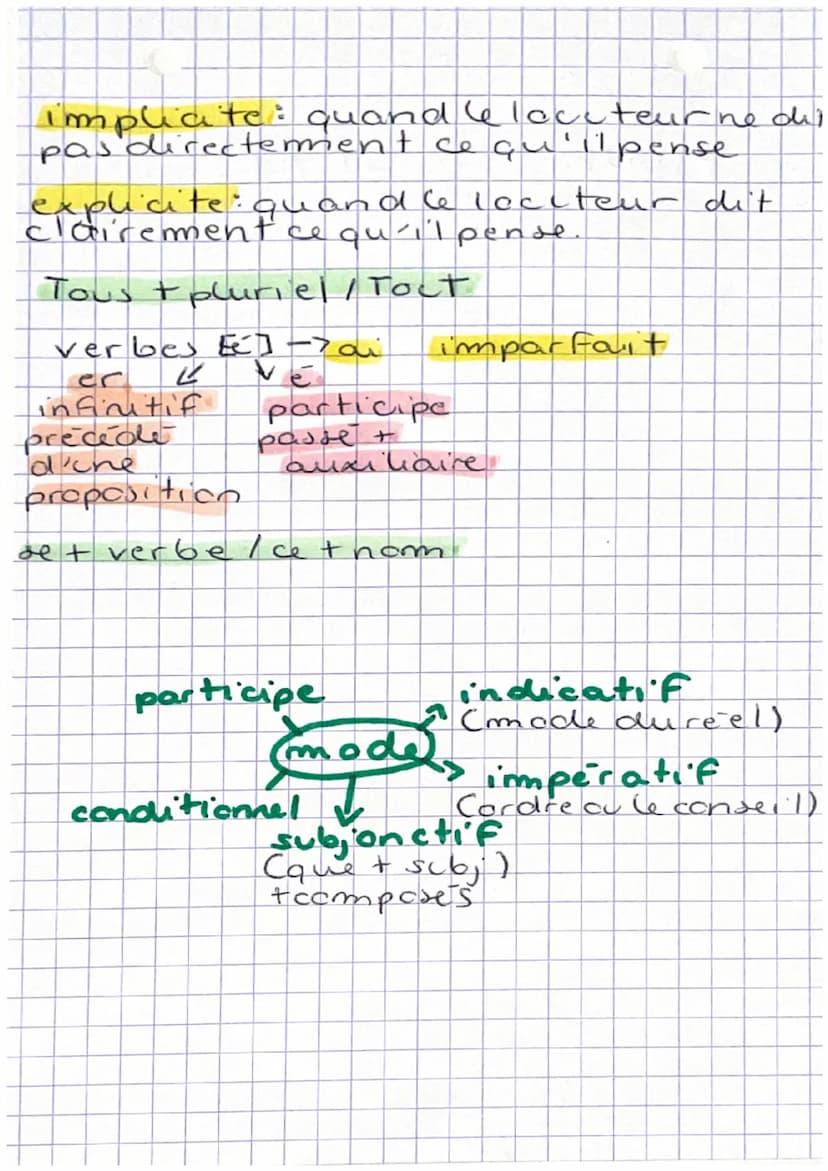 implicite: quand le locuteur ne dit
pas directement ce qu'il pense
explicite: quand le locuteur dit
clairement ce qu'il pense.
Tous + pluriel / Tout
verbes [é] → ai imparfait
er é
infinitif participe
précédé passé +
d'une auxiliaire
proposition
se + verbe / ce + nom
participe indicatif
(mode du réel)
mode
impératif
conditionnel (ordre ou le conseil)
subjonctif
(que + subj)
+composés